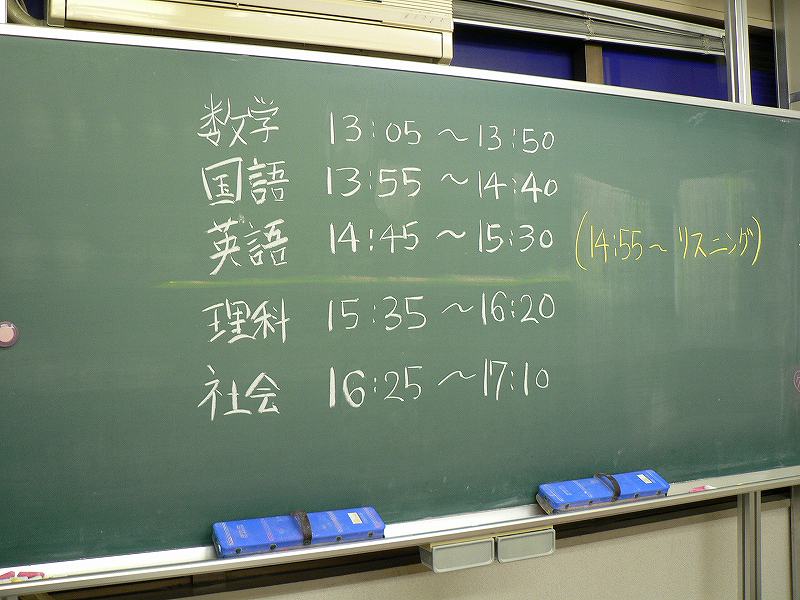 数学 13:05 ～ 13:50
国語 13:55 ～ 14:40
英語 14:45 ～ 15:30 (14:55～ リスニング)
理科 15:35 ～ 16:20
社会 16:25 ～ 17:10